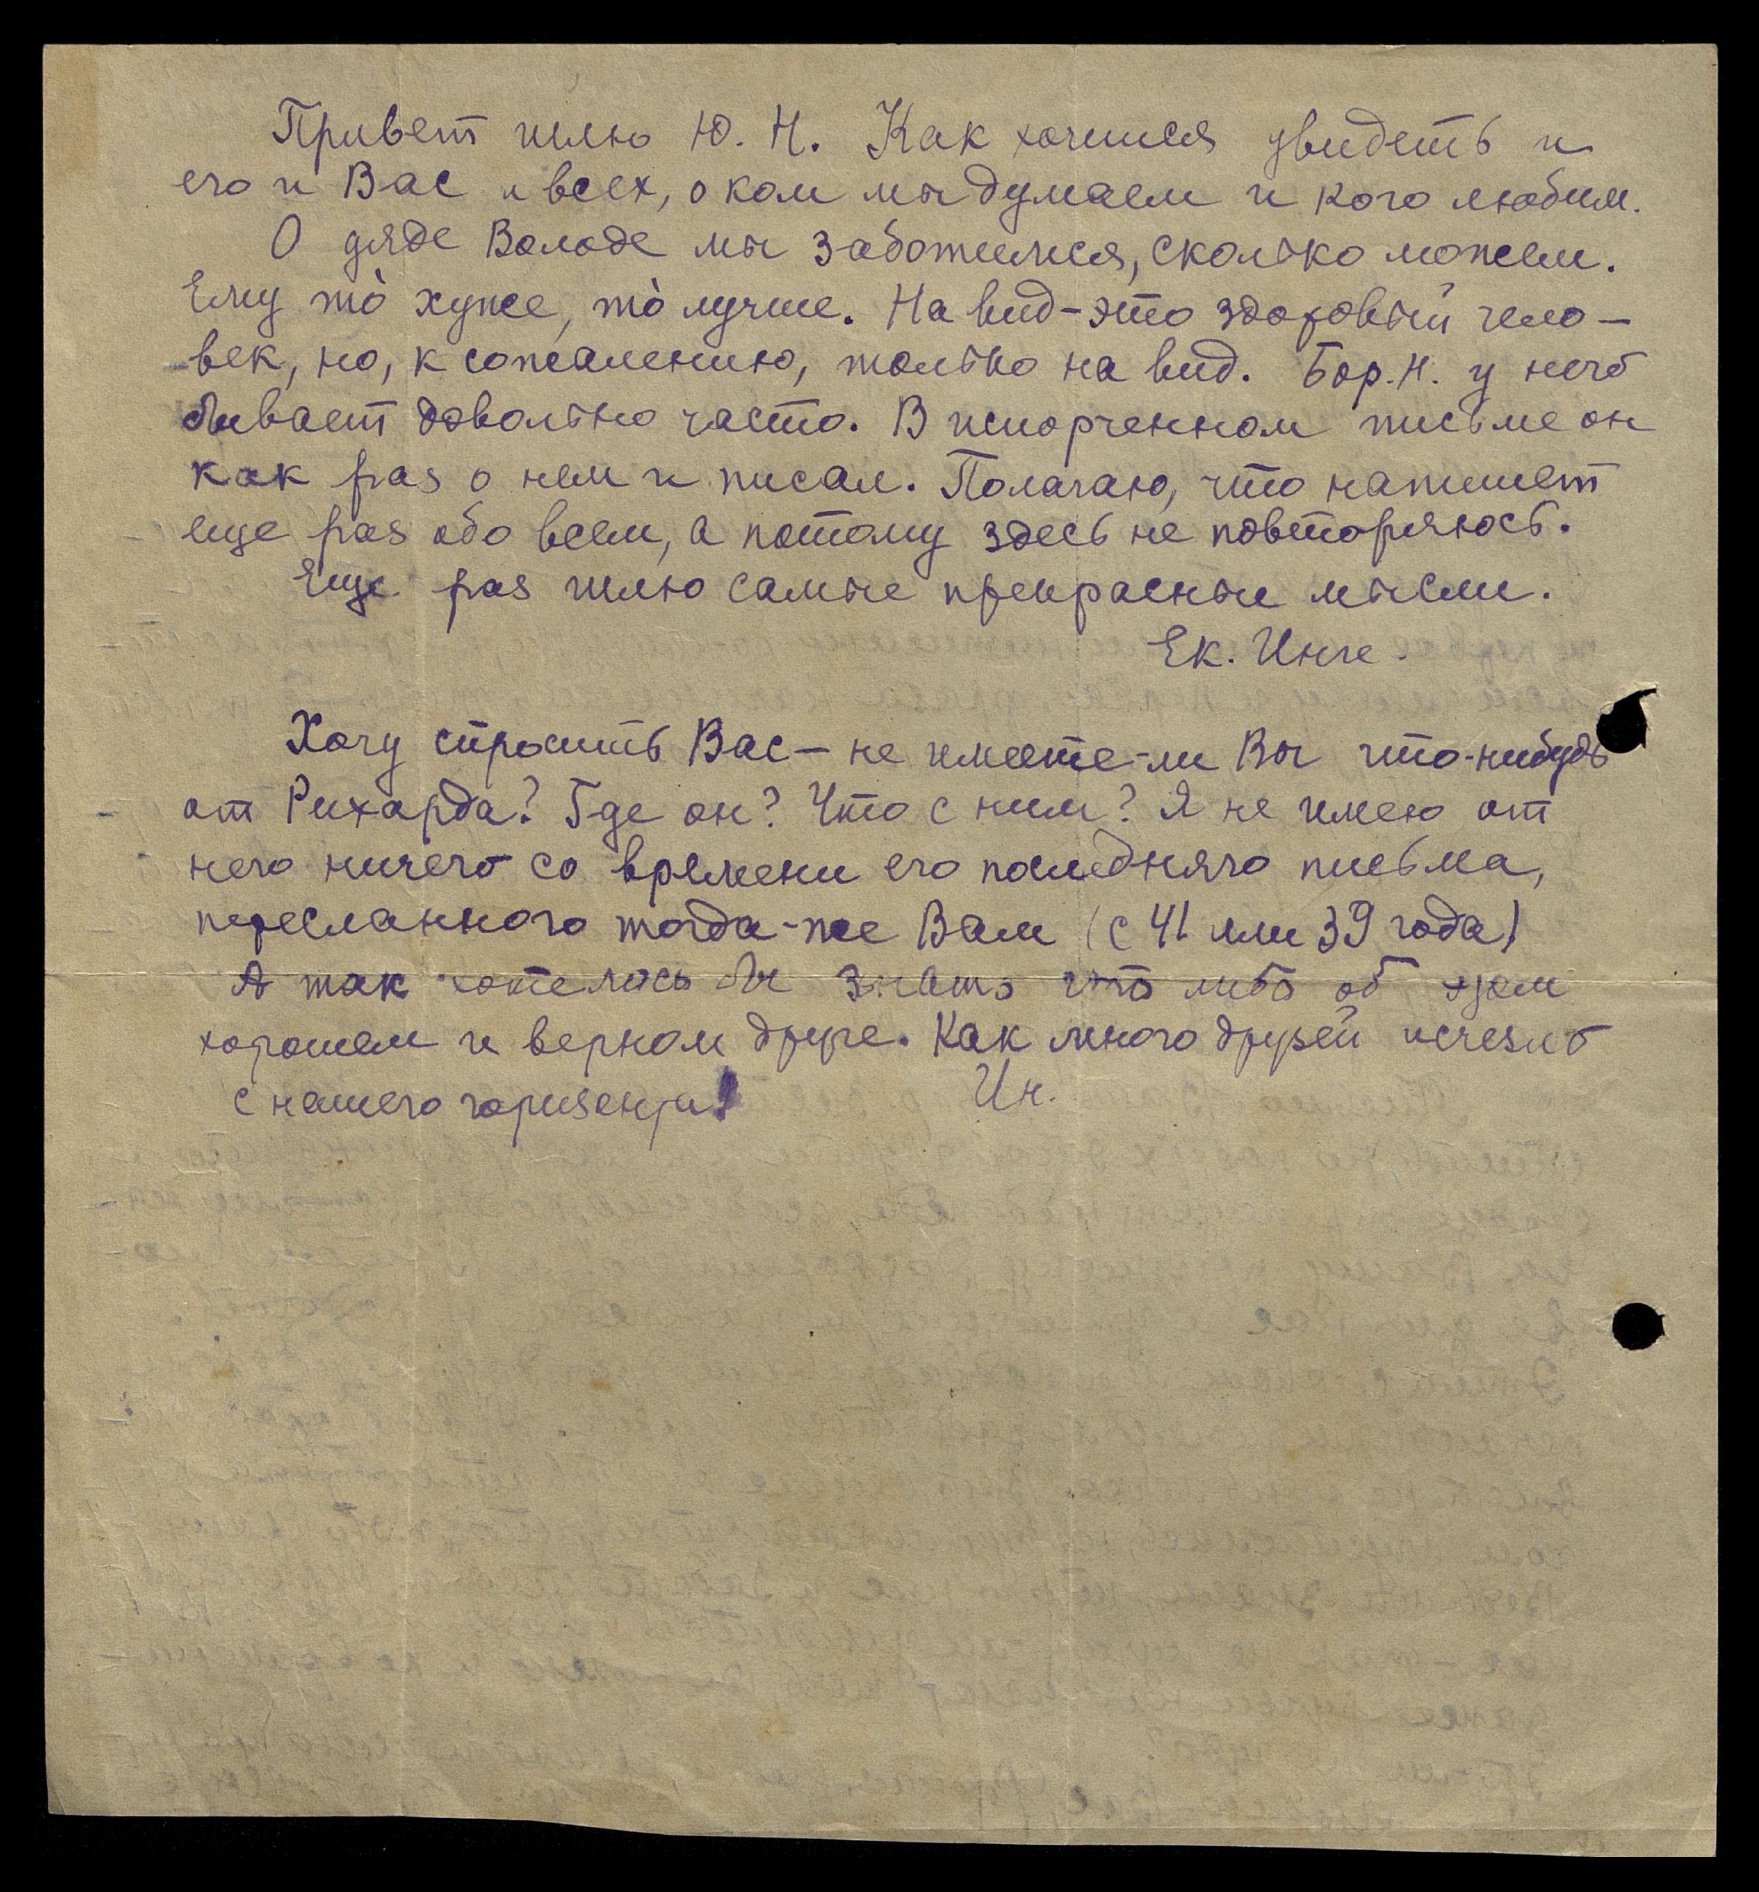 Привет шлю Ю. Н. Как хочется увидеть и
его и Вас и всех, о ком мы думаем и кого любим.
О дяде Володе мы заботимся, сколько можем.
Ему то̀ хуже, то̀ лучше. На вид - это здоровый чело-
век, но, к сожалению, только на вид. Бор. Н. у него
бывает довольно часто. В испорченном письме он
как раз о нем и писал. Полагаю, что напишет
еще раз обо всем, а потому здесь не повторяюсь.
Еще раз шлю самые прекрасные мысли.
Ек. Инге.
Хочу спросить Вас - не имеете-ли Вы что-нибудь
от Рихарда? Где он? Что с ним? Я не имею от
него ничего со времени его последняго письма,
пересланного тогда-же Вам (с 41 или 39 года)
А так хотелось бы знать что либо об этом
хорошем и верном друге. Как много друзей исчезло
с нашего горизонта!
Ин.